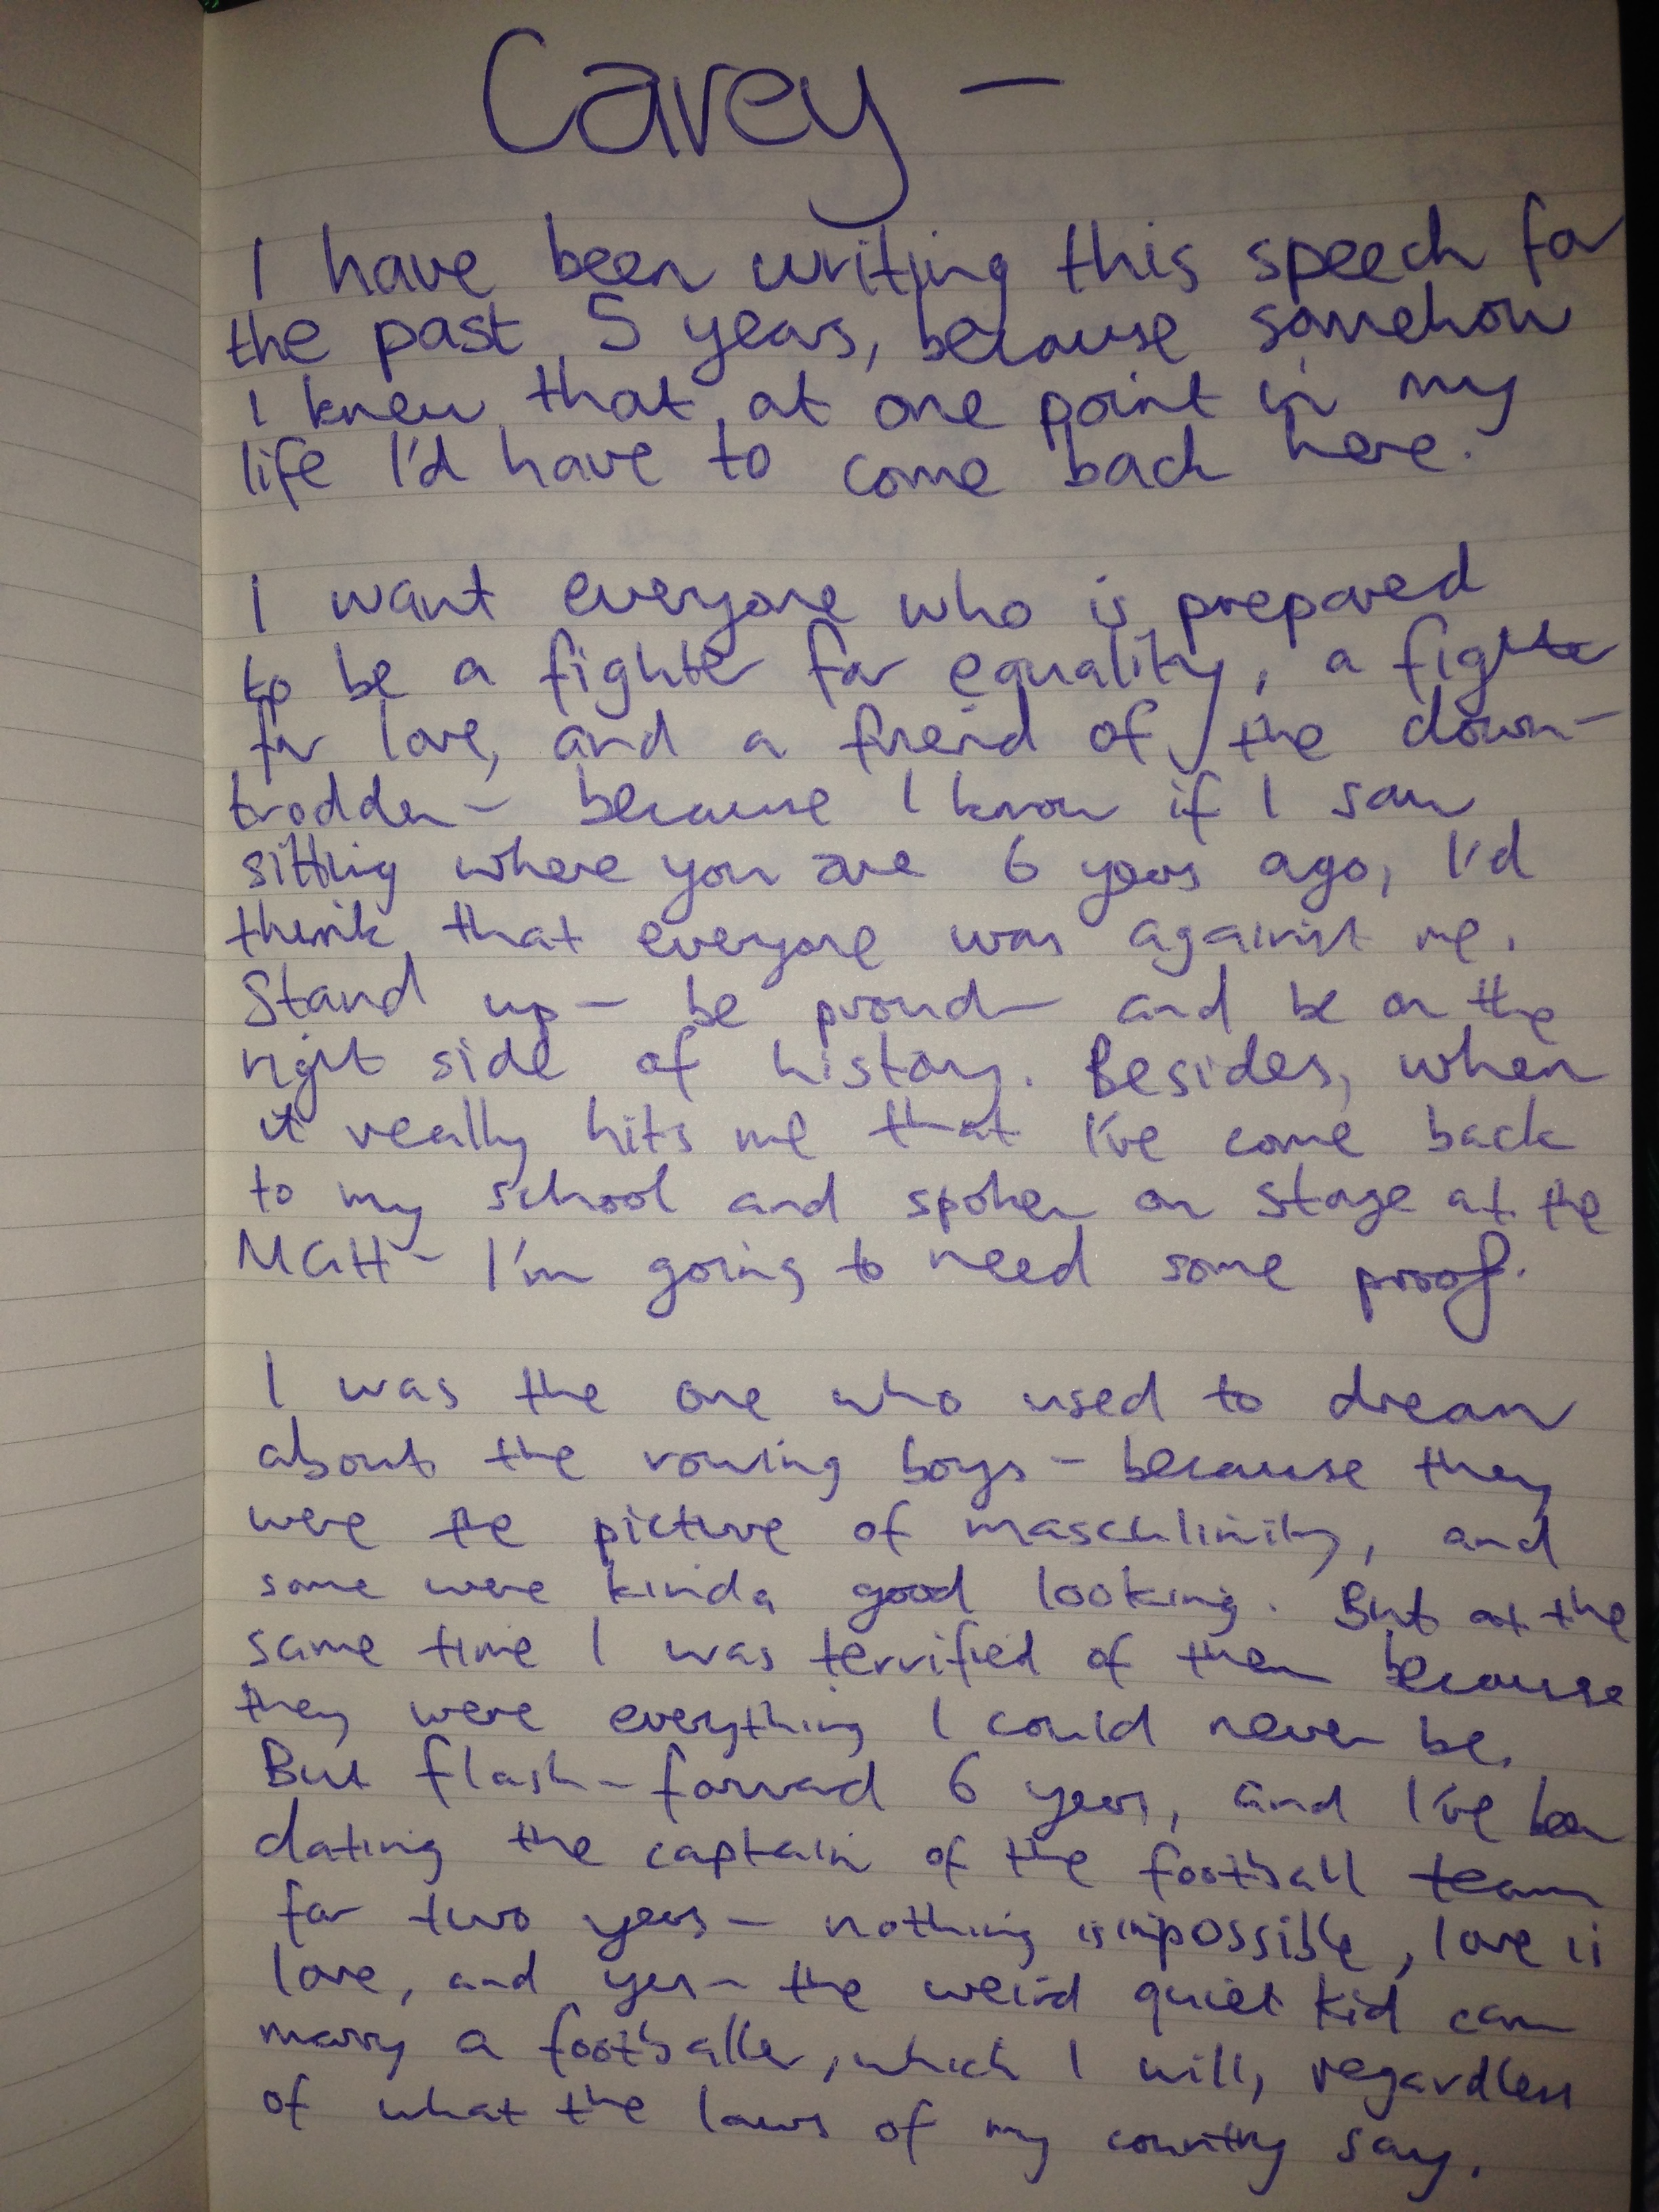 Carey —
I have been writing this speech for
the past 5 years, because somehow
I knew that at one point in my
life I'd have to come back here.
I want everyone who is prepared
to be a fighter for equality, a fighter
for love, and a friend of the down-
trodden - because I know if I saw
sitting where you are 6 years ago, I'd
think that everyone was against me.
Stand up - be proud - and be on the
right side of history. Besides, when
it really hits me that I've come back
to my school and spoken on stage at the
MGH - I'm going to need some proof.
I was the one who used to dream
about the rowing boys - because they
were the picture of masculinity, and
some were kinda good looking. But at the
same time I was terrified of them because
they were everything I could never be.
But flash-forward 6 years, and I've been
dating the captain of the football team
for two years - nothing is impossible, love is
love, and yes - the weird quiet kid can
marry a footballer, which I will, regardless
of what the laws of my country say.